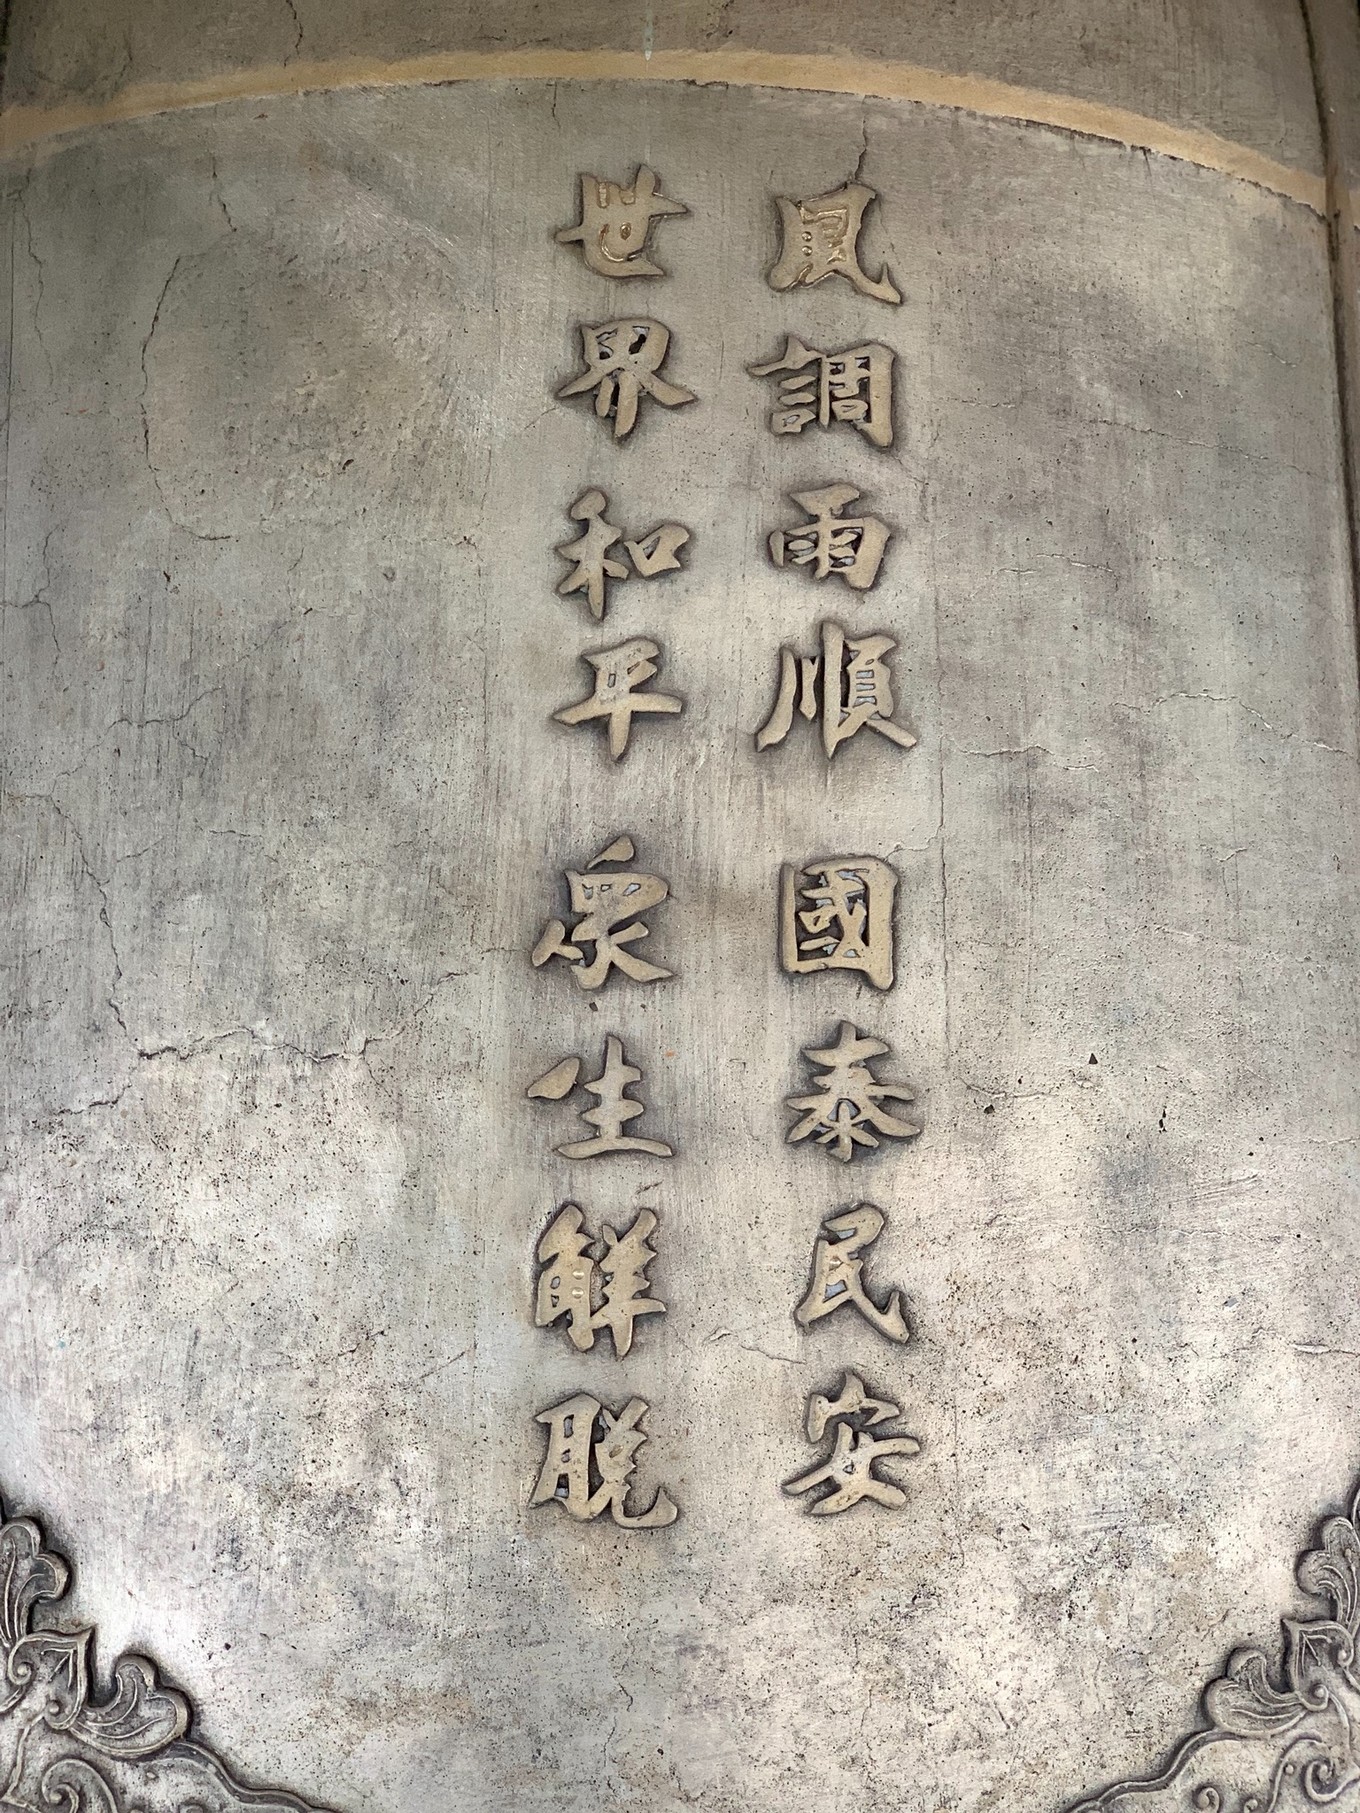 風調雨順 國泰民安
世界和平 眾生解脫